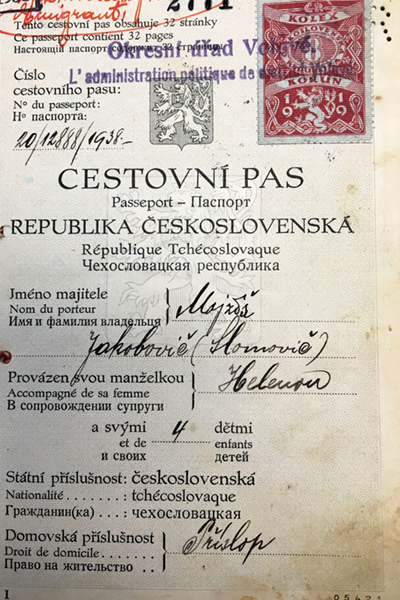 2771
Emigrant
Tento cestovní pas obsahuje 32 stránky
Ce passeport contient 32 pages
Настоящий паспорт содержит 32 страницы
Okresní úřad Volové.
L'administration politique de
KOLEK
KORUN
1919
Číslo
cestovního pasu:
No du passeport:
Но паспорта:
20/12888/1938.-
CESTOVNÍ PAS
Passeport – Паспорт
REPUBLIKA ČESKOSLOVENSKÁ
République Tchécoslovaque
Чехословацкая республика
Jméno majitele
Nom du porteur
Имя и фамилия владельца
Majžíš
Jakobovič (Slomovič)
Provázen svou manželkou
Accompagné de sa femme
В сопровождении супруги
Helenou
a svými 4 dětmi
et de enfants
и своих детей
Státní příslušnost: československá
Nationalité ...... : tchécoslovaque
Гражданин(ка) .... : чехословацкая
Domovská příslušnost
Droit de domicile ....
Право на жительство ..
Příslop
I
05421